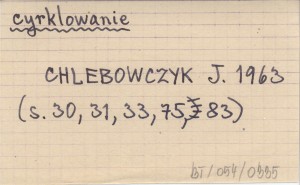 cyrklowanie
CHLEBOWCZYK J. 1963
(s. 30, 31, 33, 75, 83)
BT/054/0995